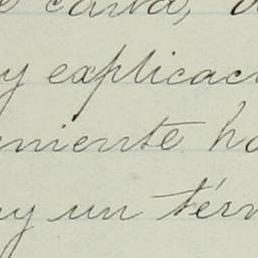 e carta,
y explicac
eniente ha
y un tér